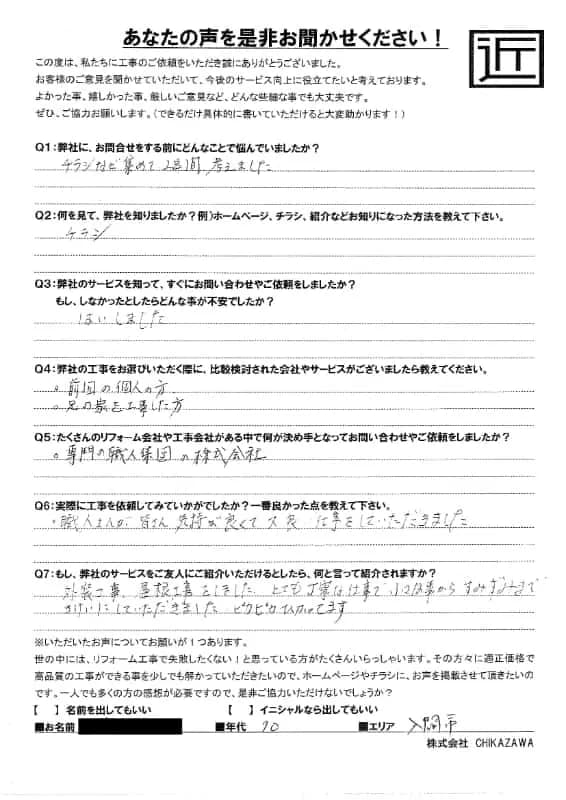 あなたの声を是非お聞かせください！
近
この度は、私たちに工事のご依頼をいただき誠にありがとうございました。
お客様のご意見を聞かせていただいて、今後のサービス向上に役立てたいと考えております。
よかった事、嬉しかった事、厳しいご意見など、どんな些細な事でも大丈夫です。
ぜひ、ご協力お願いします。（できるだけ具体的に書いていただけると大変助かります！）
Q1：弊社に、お問合せをする前にどんなことで悩んでいましたか？
チラシなど集めて 2週間 考えました
Q2：何を見て、弊社を知りましたか？例）ホームページ、チラシ、紹介などお知りになった方法を教えて下さい。
チラシ
Q3：弊社のサービスを知って、すぐにお問い合わせやご依頼をしましたか？
もし、しなかったとしたらどんな事が不安でしたか？
はい しました
Q4：弊社の工事をお選びいただく際に、比較検討された会社やサービスがございましたら教えてください。
。前回の個人の方
。兄の家を工事した方
Q5：たくさんのリフォーム会社や工事会社がある中で何が決め手となってお問い合わせやご依頼をしましたか？
。専門の職人集団の株式会社
Q6：実際に工事を依頼してみていかがでしたか？一番良かった点を教えて下さい。
・職人さんが皆さん 気持が良くて 仕事をしていただきました
Q7：もし、弊社のサービスをご友人にご紹介いただけるとしたら、何と言って紹介されますか？
外装工事、屋根工事をしました とても丁寧な仕事で 小さな事からすみずみまで
きれいにしていただきました ピカピカ てます
※いただいたお声についてお願いが１つあります。
世の中には、リフォーム工事で失敗したくない！と思っている方がたくさんいらっしゃいます。その方々に適正価格で
高品質の工事ができる事を少しでも解かっていただきたいので、ホームページやチラシに、お声を掲載させて頂きたいの
です。一人でも多くの方の感想が必要ですので、是非ご協力いただけないでしょうか？
【　】名前を出してもいい　【　】イニシャルなら出してもいい
■お名前　■年代 70　■エリア 入間市
株式会社 CHIKAZAWA